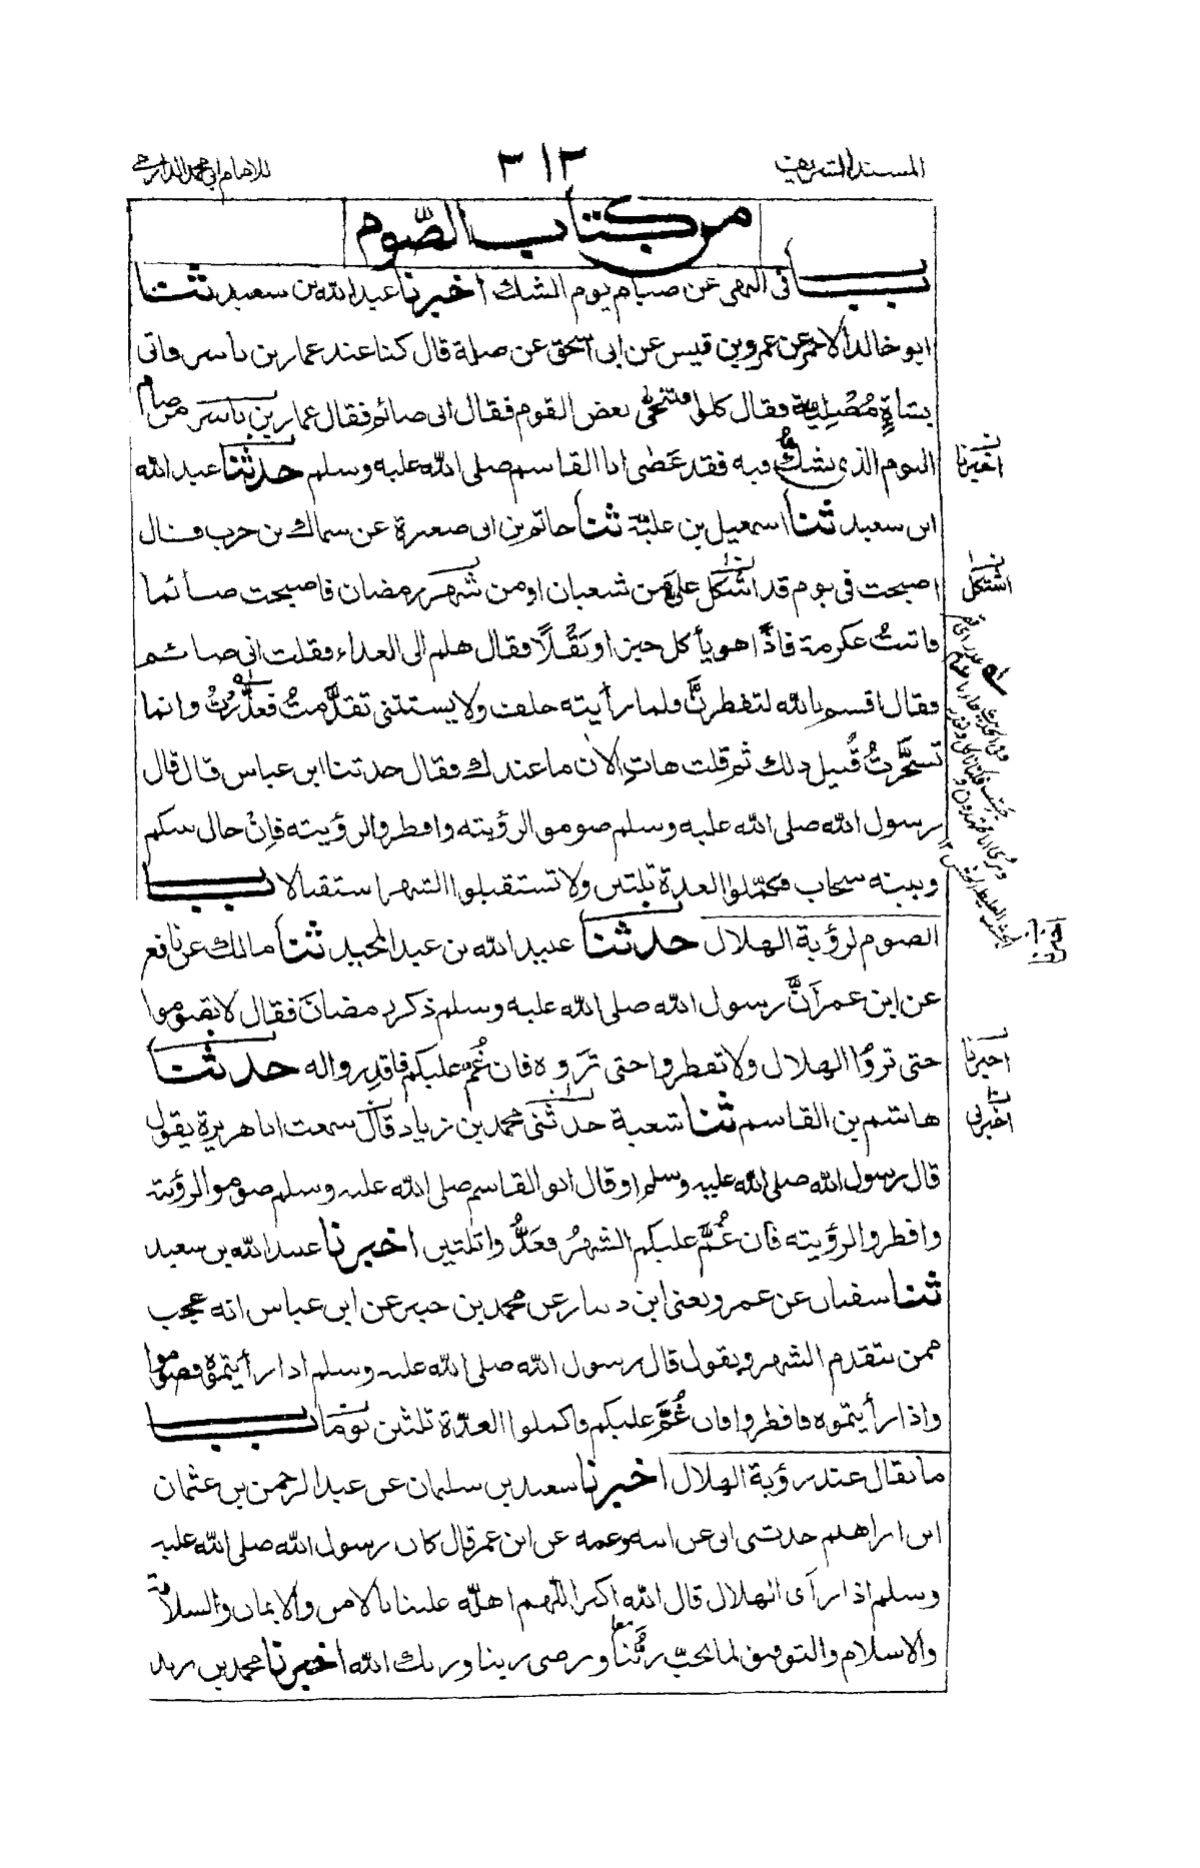 المسند الشريف
٣١٣
للامام ابي محمد الدارمي
من كتاب الصّوم
باب فى النهى عن صيام يوم الشك اخبرنا عبد الله بن سعيد ثنا
ابو خالد الاحمر عن عمرو بن قيس عن ابى اسحق عن صلة قال كنا عند عمار بن ياسر فاتى
بشاةٍ مُصْلِيةٍ فقال كلوا فتنحّى بعض القوم فقال انى صائم فقال عمار بن ياسر من صام
اليوم الذى يشكُّ فيه فقد عَصٰى ابا القاسم صلى الله عليه وسلم حدثنا عبد الله
ابن سعيد ثنا اسمعيل بن عليّة ثنا حاتم بن ابى صغيرة عن سماك بن حرب قال
اصبحت فى يوم قد اشكل علىَّ من شعبان او من شهر رمضان فاصبحت صائما
فاتيتُ عكرمة فاذا هو يأكل خبزا وبَقْلًا فقال هلم الى الغداء فقلت انى صائم
فقال اقسم بالله لتفطرنَّ فلما رأيته حلف ولا يستثنى تقدَّمتُ فعذَّرْتُ وانما
تسحَّرتُ قُبيل ذلك ثم قلت هاتِ الآن ما عندك فقال حدثنا ابن عباس قال قال
رسول الله صلى الله عليه وسلم صوموا لرؤيته وافطروا لرؤيته فاِنْ حال بينكم
وبينه سحاب فكمّلوا العدة ثلثين ولا تستقبلوا الشهر استقبالا باب
الصوم لرؤية الهلال حدثنا عبيد الله بن عبد المجيد ثنا مالك عن نافع
عن ابن عمر اَنَّ رسول الله صلى الله عليه وسلم ذكر رمضان فقال لا تصوموا
حتى تروُا الهلال ولا تفطروا حتى تَرَوه فان غُمَّ عليكم فاقدِروا له حدثنا
هاشم بن القاسم ثنا شعبة حدثنى محمد بن زياد قال سمعت ابا هريرة يقول
قال رسول الله صلى الله عليه وسلم او قال ابو القاسم صلى الله عليه وسلم صوموا لرؤيته
وافطروا لرؤيته فان غُمَّ عليكم الشهرُ فعَدُّوا ثلثين اخبرنا عبد الله بن سعيد
ثنا سفيان عن عمرو يعنى ابن دينار عن محمد بن جبير عن ابن عباس انه عجب
ممن يتقدم الشهر ويقول قال رسول الله صلى الله عليه وسلم اذا رأيتموه فصوموا
واذا رأيتموه فافطروا فان غُمَّ عليكم فاكملوا العدّة ثلثين يوما باب
ما يقال عند رؤية الهلال اخبرنا سعيد بن سليمان عن عبد الرحمن بن عثمان
ابن ابراهيم حدثنى ابى عن ابيه وعمه عن ابن عمر قال كان رسول الله صلى الله عليه
وسلم اذا رآى الهلال قال الله اكبر اللّهم اهلّه علينا بالامن والايمان والسلامة
والاسلام والتوفيق لما تحبّ ربُّنا وترضى ربنا وربك الله اخبرنا محمد بن يزيد
اخبرنا
اشتكل
اخبرنا
اخبرنا
اخبرنى